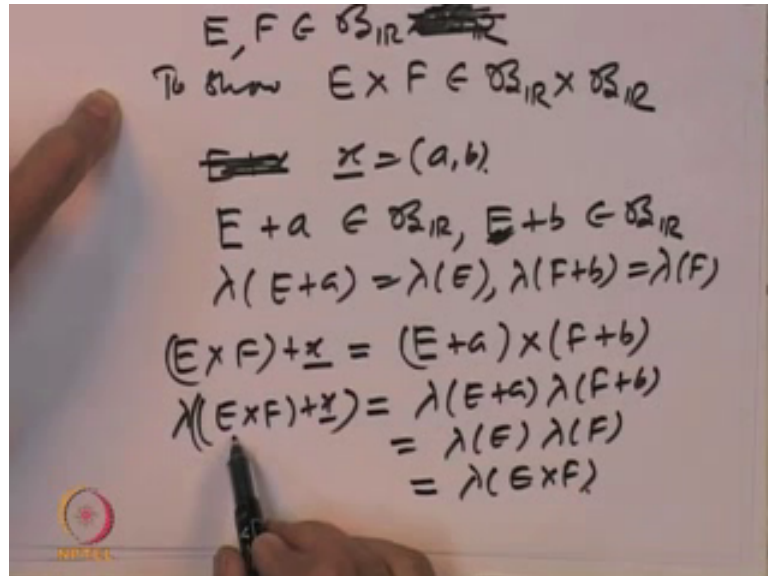 E, F ∈ 𝓑_ℝ
To show E × F ∈ 𝓑_ℝ × 𝓑_ℝ
x = (a, b).
E + a ∈ 𝓑_ℝ, E + b ∈ 𝓑_ℝ
λ(E+a) = λ(E), λ(F+b) = λ(F)
(E × F) + x = (E + a) × (F + b)
λ((E × F) + x) = λ(E+a) λ(F+b)
= λ(E) λ(F)
= λ(E × F).
NPTEL